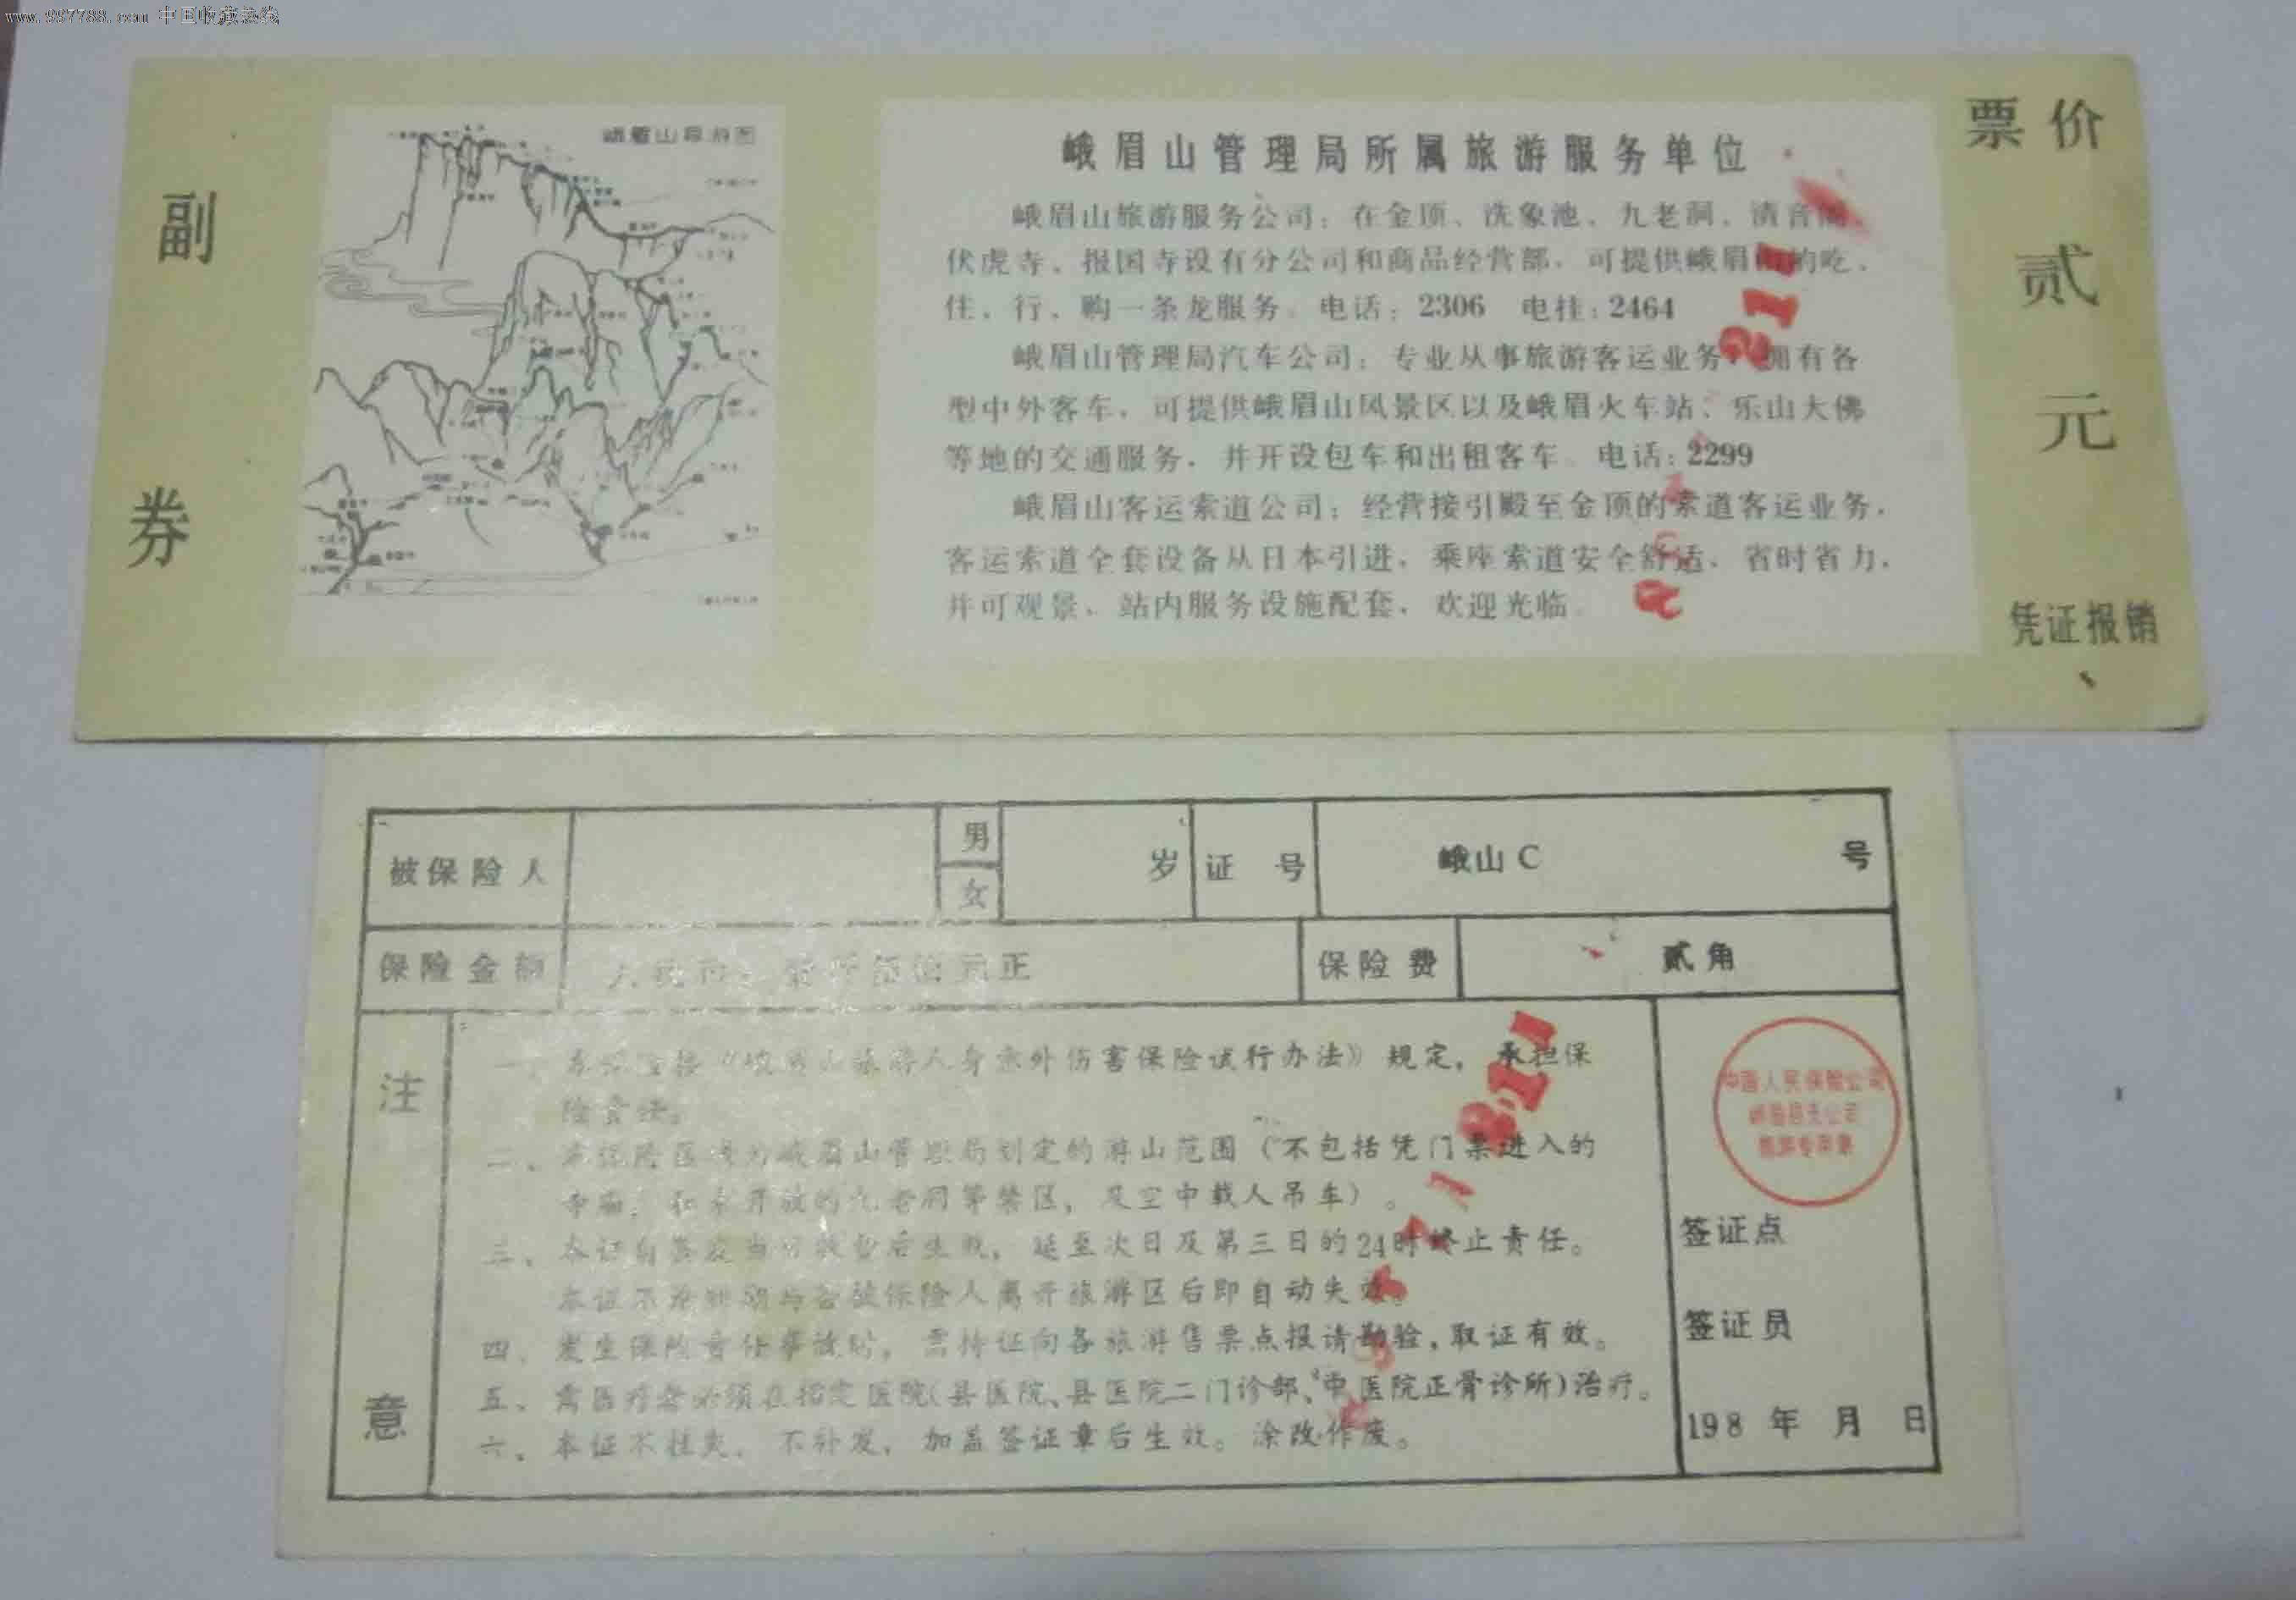 www.997788.com 中国收藏热线
副
券
峨眉山导游图
峨眉山管理局所属旅游服务单位
峨眉山旅游服务公司：在金顶、洗象池、九老洞、清音阁、
伏虎寺、报国寺设有分公司和商品经营部，可提供峨眉山的吃、
住、行、购一条龙服务。电话：2306 电挂：2464
峨眉山管理局汽车公司：专业从事旅游客运业务，拥有各
型中外客车，可提供峨眉山风景区以及峨眉火车站、乐山大佛
等地的交通服务，并开设包车和出租客车。电话：2299
峨眉山客运索道公司：经营接引殿至金顶的索道客运业务，
客运索道全套设备从日本引进，乘座索道安全舒适、省时省力，
并可观景、站内服务设施配套，欢迎光临。
票价
贰
元
凭证报销
被保险人 男 女 岁 证号 峨山C 号
保险金额 元正 保险费 贰角
注
意
一、本保险按《峨眉山旅游人身意外伤害保险试行办法》规定，承担保
险责任。
二、本保险区域为峨眉山管理局划定的游山范围（不包括凭门票进入的
寺庙，和未开放的九老洞等禁区，及空中载人吊车）。
三、本证自签发当日 后生效，延至次日及第三日的24时终止责任。
本证不 被保险人离开旅游区后即自动失效。
四、发生保险责任事故时，需持证向各旅游售票点报请勘验，取证有效。
五、需医疗者必须在指定医院（县医院、县医院二门诊部、中医院正骨诊所）治疗。
六、本证不挂失、不补发，加盖签证章后生效。涂改作废。
中国人民保险公司
峨眉县支公司
签证点
签证员
198 年 月 日